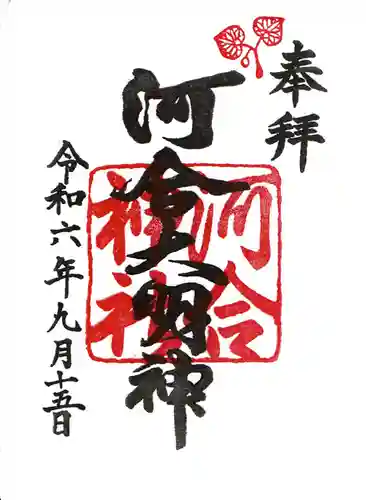 奉拝
河合大明神
河合
神社
令和六年九月十五日